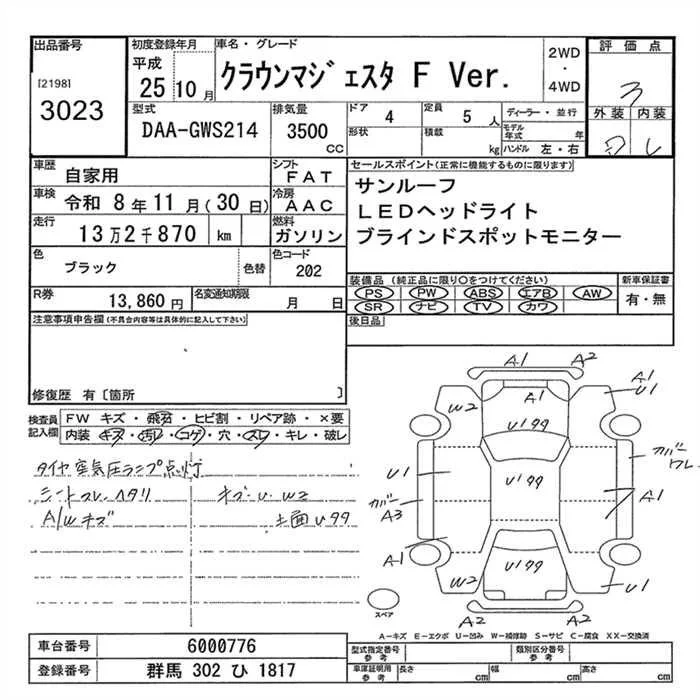 出品番号 初度登録年月 車名・グレード 評価点
[2198]
3023
平成
25 10月
クラウンマジェスタ F Ver.
2WD
・
4WD
3
外装 内装
型式
DAA-GWS214
排気量
3500 CC
ドア 4
形状
定員 5 人
積載 kg
ディーラー・並行
モデル年式 年
ハンドル 左・右
車歴 自家用
シフト FAT
車検 令和 8年 11月(30日)
冷房 AAC
走行 13万2千870 km
燃料 ガソリン
色 ブラック 色替
色コード 202
R券 13,860円
名変通知期限 月 日
セールスポイント(正常に機能するものに限ります)
サンルーフ
LEDヘッドライト
ブラインドスポットモニター
装備品(純正品に限り○をつけてください) 新車保証書
PS PW ABS エアB AW 有・無
SR ナビ TV カワ
後日品
注意事項申告欄(不具合内容等は具体的に記入して下さい)
修復歴 有〔箇所 〕
検査員記入欄
FW キズ・飛石・ヒビ割・リペア跡・×要
内装・キズ・汚レ・コゲ・穴・スレ・キレ・破レ
タイヤ空気圧ランプ点灯
シートスレ、ヘタリ キズ・U・W2
A/Wキズ 上面U99
A1 A2
A1
U1
W2 A1
U199
カバーワレ
U1 U199
A1
カバー
A3
A1
W2 U199 U1
A2 A2
スペア
A-キズ E-エクボ U-凹み W-補修跡 S-サビ C-腐食 XX-交換済
車台番号 6000776
登録番号 群馬 302 ひ 1817
型式指定番号 参考 類別区分番号 参考
車庫証明用 参考 長さ cm 幅 cm 高さ cm